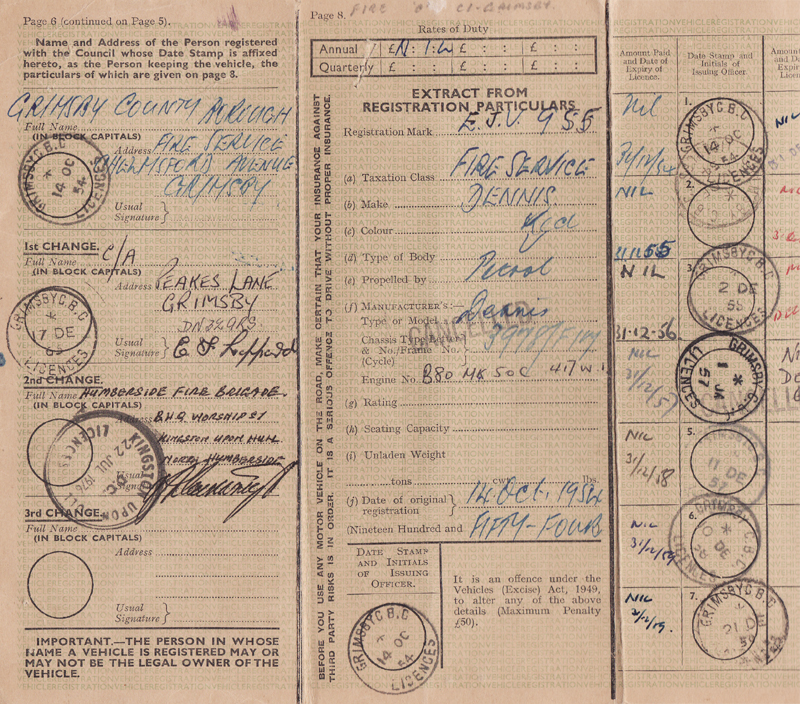 Page 6 (continued on Page 5).
Name and Address of the Person registered
with the Council whose Date Stamp is affixed
hereto, as the Person keeping the vehicle, the
particulars of which are given on page 8.
GRIMSBY COUNTY BOROUGH
Full Name
(IN BLOCK CAPITALS)
Address FIRE SERVICE
CHELMSFORD AVENUE
GRIMSBY
GRIMSBY C.B.C
14 OC
54
LICENCES
Usual
Signature
1st CHANGE. C/A
Full Name
(IN BLOCK CAPITALS)
Address PEAKES LANE
GRIMSBY
GRIMSBY C.B.C
17 DE
LICENCES
Usual
Signature
2nd CHANGE.
Full Name HUMBERSIDE FIRE BRIGADE.
(IN BLOCK CAPITALS)
B.H.Q WORSHIP ST
KINGSTON UPON HULL
NORTH HUMBERSIDE
KINGSTON UPON HULL
22 JUL 1976
LICENCES
Usual
Signature
3rd CHANGE.
Full Name
(IN BLOCK CAPITALS)
Address
Usual
Signature
IMPORTANT.—THE PERSON IN WHOSE
NAME A VEHICLE IS REGISTERED MAY OR
MAY NOT BE THE LEGAL OWNER OF THE
VEHICLE.
BEFORE YOU USE ANY MOTOR VEHICLE ON THE ROAD, MAKE CERTAIN THAT YOUR INSURANCE AGAINST
THIRD PARTY RISKS IS IN ORDER. IT IS A SERIOUS OFFENCE TO DRIVE WITHOUT PROPER INSURANCE.
Page 8.
Rates of Duty
Annual £ N : I : L £ : : £ : :
Quarterly £ : : £ : : £ : :
EXTRACT FROM
REGISTRATION PARTICULARS
Registration Mark E.J.V. 955
(a) Taxation Class FIRE SERVICE
(b) Make DENNIS
(c) Colour Red
(d) Type of Body
(e) Propelled by Petrol
(f) MANUFACTURER'S:—
Type or Model Dennis
CANCELLED
Chassis Type Letter
& No./Frame No.
(Cycle)
Engine No. B80 MK 50C 417W1
(g) Rating
(h) Seating Capacity
(i) Unladen Weight
tons cwt. lbs.
(j) Date of original
registration 14 Oct. 1954
(Nineteen Hundred and FIFTY-FOUR
DATE STAMP
AND INITIALS
OF ISSUING
OFFICER.
GRIMSBY C.B.C
14 OC
54
LICENCES
It is an offence under the
Vehicles (Excise) Act, 1949,
to alter any of the above
details (Maximum Penalty
£50).
Amount Paid
and Date of
Expiry of
Licence.
Date Stamp and
Initials of
Issuing Officer.
Nil
31/12/54
1.
GRIMSBY C.B.C
14 OC
54
LICENCES
NIL
2.
NIL
31-12-56
3.
GRIMSBY C.B.C
2 DE
55
LICENCES
NIL
31/12/57
GRIMSBY C.B.C
1 JA
57
LICENCES
NIL
31/12/58
5.
11 DE
57
NIL
31/12/59
6.
GRIMSBY C.B.C
DE
LICENCES
NIL
7.
GRIMSBY C.B.C
21 DE